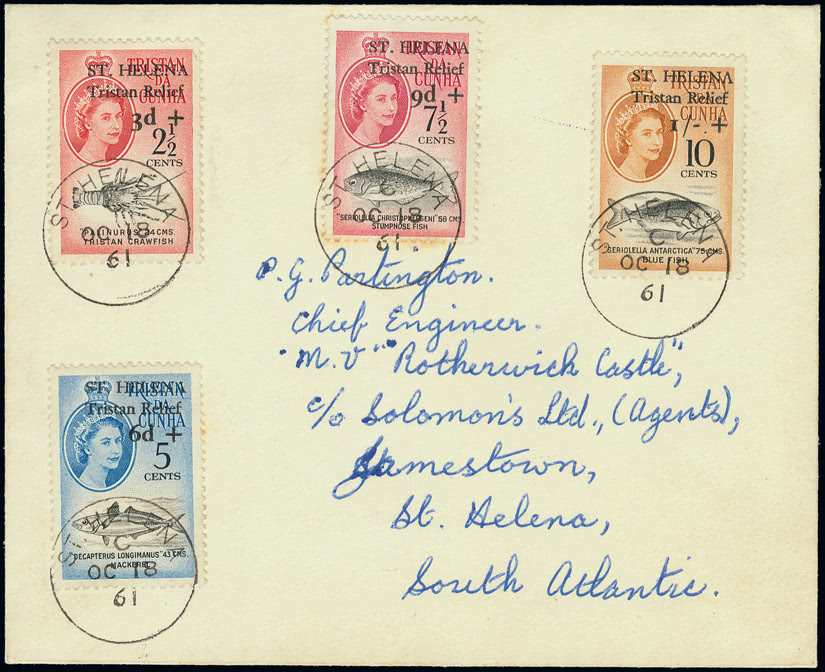 TRISTAN
DA
CUNHA
ST. HELENA
Tristan Relief
3d +
2½
CENTS
PALINURUS 24 CMS.
TRISTAN CRAWFISH
ST. HELENA
C
OC 18
61
TRISTAN
DA
CUNHA
ST. HELENA
Tristan Relief
9d +
7½
CENTS
"SERIOLELLA CHRISTOPHERSENI" 58 CMS.
STUMPNOSE FISH
ST. HELENA
C
OC 18
61
TRISTAN
DA
CUNHA
ST. HELENA
Tristan Relief
1/- +
10
CENTS
"SERIOLELLA ANTARCTICA" 75 CMS.
BLUE FISH
ST. HELENA
C
OC 18
61
P. G. Partington.
Chief Engineer.
"M.V" "Rotherwick Castle",
c/o Solomon's Ltd., (Agents),
Jamestown,
St. Helena,
South Atlantic.
TRISTAN
DA
CUNHA
ST. HELENA
Tristan Relief
6d +
5
CENTS
"DECAPTERUS LONGIMANUS" 43 CMS.
MACKEREL
ST. HELENA
C
OC 18
61